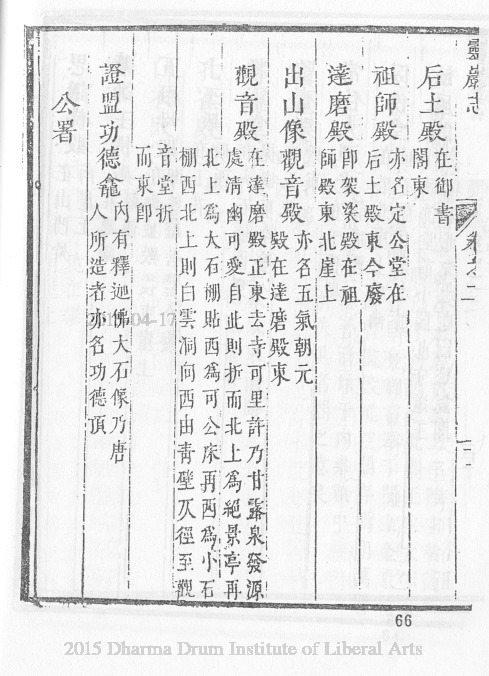 靈巖志
卷之二
后土殿在御書
閣東
祖師殿亦名定公堂在
后土殿東今廢
達磨殿卽袈裟殿在祖
師殿東北崖上
出山像觀音殿亦名五氣朝元
殿在達磨殿東
觀音殿在達磨殿正東去寺可里許乃甘露泉發源
處清幽可愛自此則折而北上爲絕景亭再
北上爲大石棚貼西爲可公床再西爲小石
棚西北上則白雲洞向西由靑壁仄徑至觀
音堂折
而東卽
證盟功德龕內有釋迦佛大石像乃唐
人所造者亦名功德頂
公署
66
2015 Dharma Drum Institute of Liberal Arts